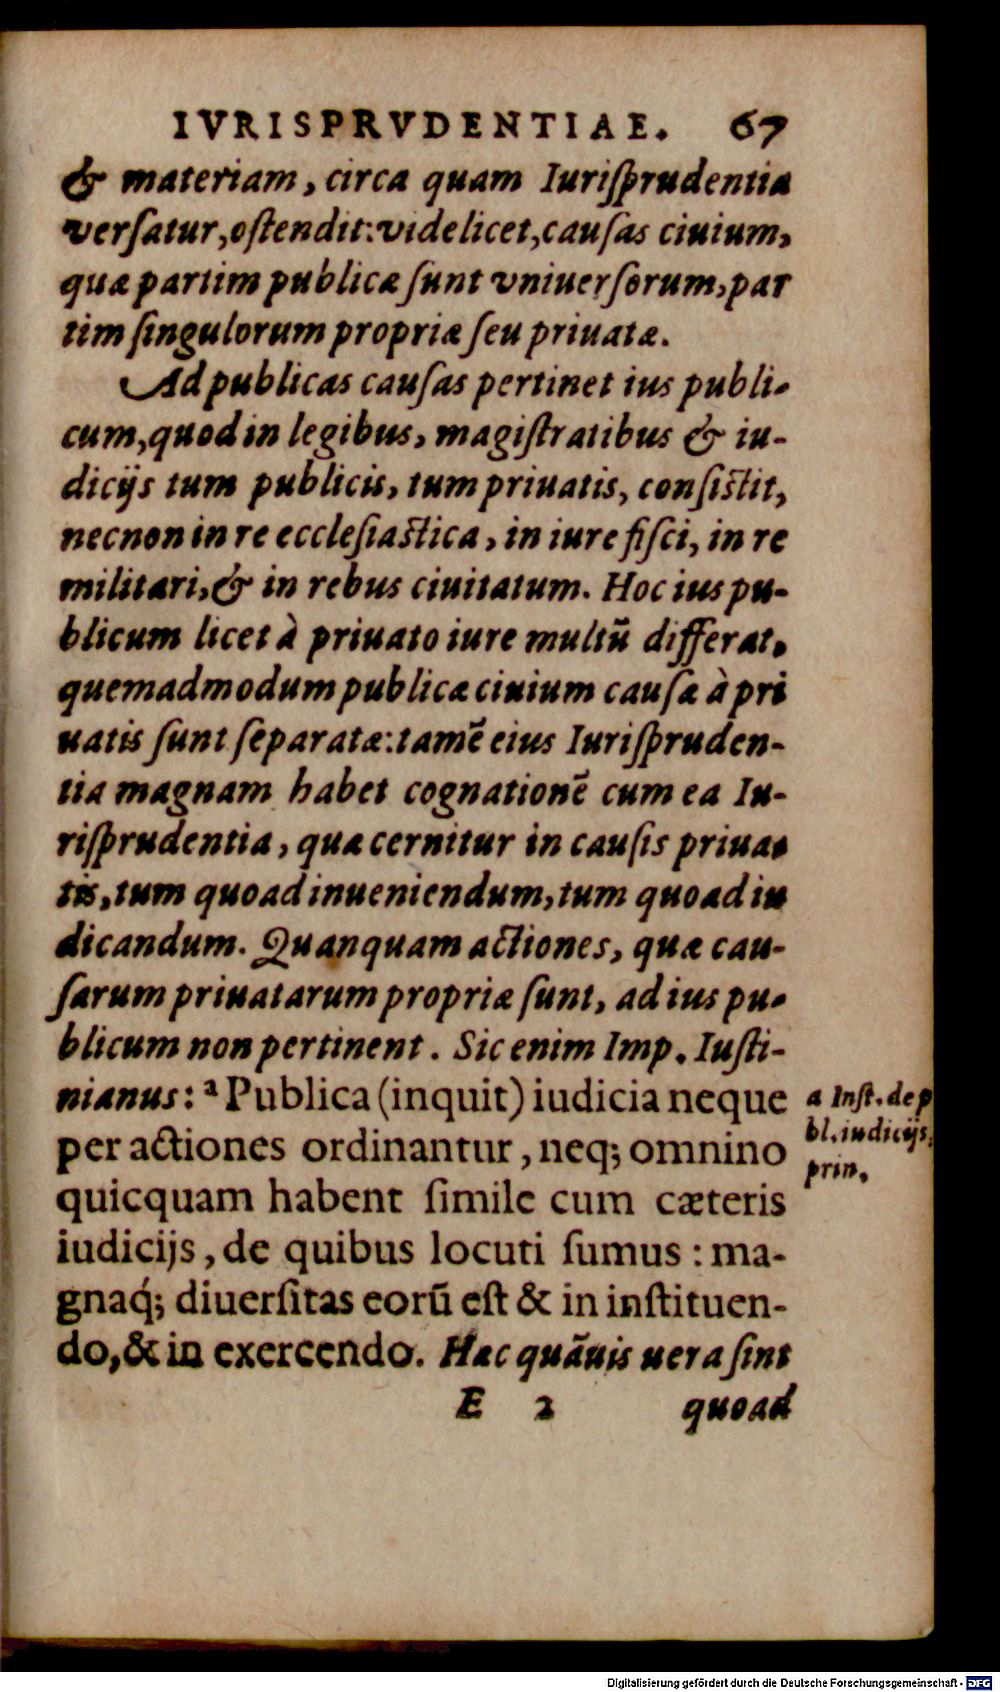 IVRISPRVDENTIAE. 67
& materiam, circa quam Iuriſprudentia
verſatur, oſtendit: videlicet, cauſas ciuium,
quæ partim publicæ ſunt vniuerſorum, par
tim ſingulorum propriæ ſeu priuatæ.
Ad publicas cauſas pertinet ius publi-
cum, quod in legibus, magiſtratibus & iu-
dicijs tum publicis, tum priuatis, conſiſtit,
necnon in re eccleſiaſtica, in iure fiſci, in re
militari, & in rebus ciuitatum. Hoc ius pu-
blicum licet à priuato iure multũ differat,
quemadmodum publicæ ciuium cauſæ à pri
uatis ſunt ſeparatæ: tamẽ eius Iuriſpruden-
tia magnam habet cognationẽ cum ea Iu-
riſprudentia, quæ cernitur in cauſis priua-
tis, tum quoad inueniendum, tum quoad iu
dicandum. Quanquam actiones, quæ cau-
ſarum priuatarum propriæ ſunt, ad ius pu-
blicum non pertinent. Sic enim Imp. Iuſti-
nianus: ᵃ Publica (inquit) iudicia neque
per actiones ordinantur, neq; omnino
quicquam habent ſimile cum cæteris
iudicijs, de quibus locuti ſumus: ma-
gnaq́; diuerſitas eorũ eſt & in inſtituen-
do, & in exercendo. Hæc quãuis uera ſint
E 2 quoad
a Inſt. de p
bl. iudicijs.
prin.
Digitalisierung gefördert durch die Deutsche Forschungsgemeinschaft - DFG